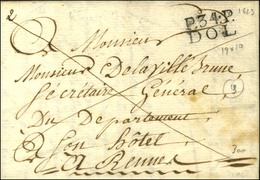 2
1823
P.34.P.
DOL
19x10
Monsieur
Monsieur Delaville Brune
Sécrétaire Général
Du Département
Son hôtel
A Rennes
300